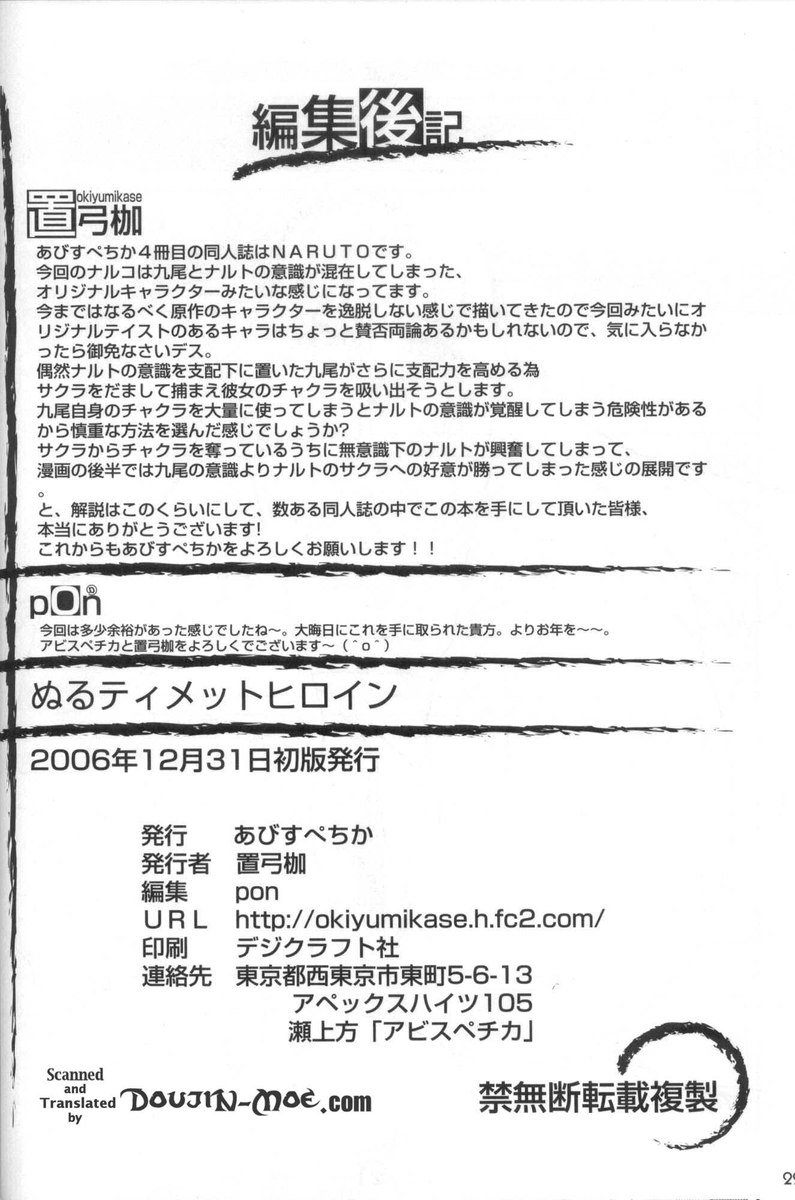 編集後記
okiyumikase
置弓枷
あびすぺちか4冊目の同人誌はNARUTOです。
今回のナルコは九尾とナルトの意識が混在してしまった、
オリジナルキャラクターみたいな感じになってます。
今まではなるべく原作のキャラクターを逸脱しない感じで描いてきたので今回みたいにオ
リジナルテイストのあるキャラはちょっと賛否両論あるかもしれないので、気に入らなか
ったら御免なさいデス。
偶然ナルトの意識を支配下に置いた九尾がさらに支配力を高める為
サクラをだまして捕まえ彼女のチャクラを吸い出そうとします。
九尾自身のチャクラを大量に使ってしまうとナルトの意識が覚醒してしまう危険性がある
から慎重な方法を選んだ感じでしょうか?
サクラからチャクラを奪っているうちに無意識下のナルトが興奮してしまって、
漫画の後半では九尾の意識よりナルトのサクラへの好意が勝ってしまった感じの展開です
。
と、解説はこのくらいにして、数ある同人誌の中でこの本を手にして頂いた皆様、
本当にありがとうございます!
これからもあびすぺちかをよろしくお願いします!!
pon
今回は多少余裕があった感じでしたね〜。大晦日にこれを手に取られた貴方。よりお年を〜〜。
アビスペチカと置弓枷をよろしくでございます〜(^o^)
ぬるティメットヒロイン
2006年12月31日初版発行
発行 あびすぺちか
発行者 置弓枷
編集 pon
URL http://okiyumikase.h.fc2.com/
印刷 デジクラフト社
連絡先 東京都西東京市東町5-6-13
アペックスハイツ105
瀬上方「アビスペチカ」
Scanned
and
Translated
by
DOUJIN-MOE.com
禁無断転載複製